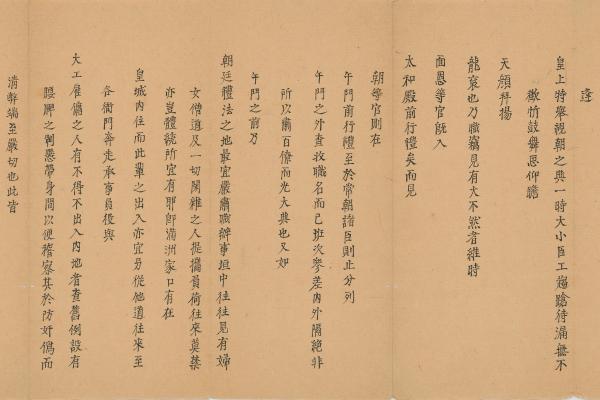 逢
皇上特舉視朝之典一時大小臣工趨蹌待漏無不
歡忻鼓舞思仰瞻
天顏拜揚
龍袞也乃職竊見有大不然者維時
面恩等官既入
太和殿前行禮矣而見
朝等官則在
午門前行禮至於常朝諸臣則止分列
午門之外查收職名而已班次參差內外隔絕非
所以肅百僚而光大典也又如
午門之前乃
朝廷禮法之地最宜嚴肅職辦事垣中往往見有婦
女僧道及一切閑雜之人提攜負荷往來莫禁
亦豈體統所宜有耶即滿洲家口有在
皇城內住而此輩之出入亦宜另從他道往來至
各衙門奔走承事員役與
大工雇傭之人有不得不出入內地者查舊例設有
腰牌之制懸帶身間以便稽察其於防奸僞而
清弊端至嚴切也此皆